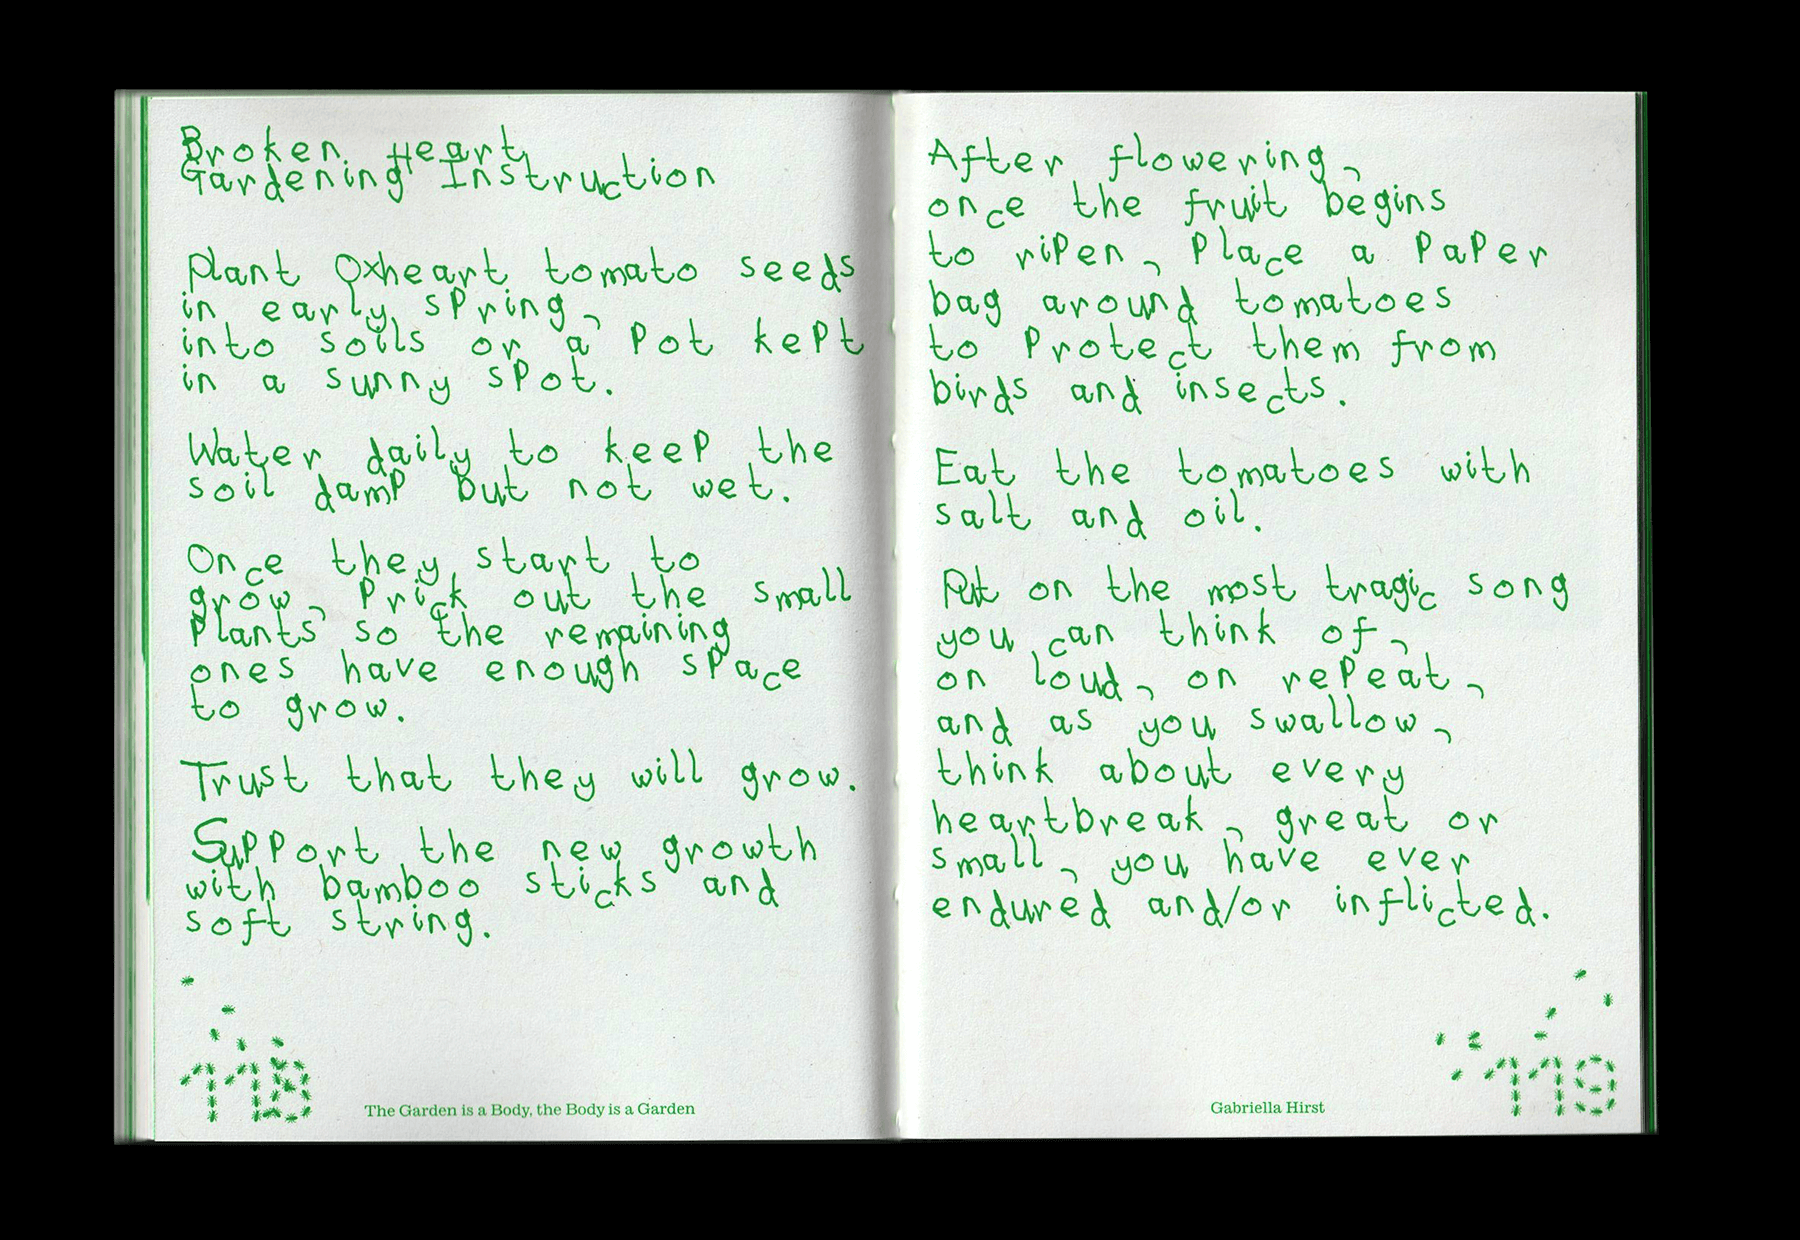 Broken Heart
Gardening Instruction
Plant Oxheart tomato seeds
in early spring,
into soils or a pot kept
in a sunny spot.
Water daily to keep the
soil damp but not wet.
Once they start to
grow, prick out the small
plants so the remaining
ones have enough space
to grow.
Trust that they will grow.
Support the new growth
with bamboo sticks and
soft string.
118
The Garden is a Body, the Body is a Garden
After flowering,
once the fruit begins
to ripen, place a paper
bag around tomatoes
to protect them from
birds and insects.
Eat the tomatoes with
salt and oil.
Put on the most tragic song
you can think of,
on loud, on repeat,
and as you swallow,
think about every
heartbreak, great or
small, you have ever
endured and/or inflicted.
Gabriella Hirst
119